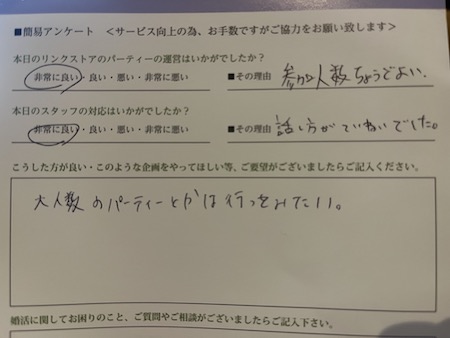 ■簡易アンケート　＜サービス向上の為、お手数ですがご協力をお願い致します＞
本日のリンクストアのパーティーの運営はいかがでしたか？
非常に良い・良い・悪い・非常に悪い　■その理由　参加人数ちょうどよい.
本日のスタッフの対応はいかがでしたか？
非常に良い・良い・悪い・非常に悪い　■その理由　話し方がていねいでした。
こうした方が良い・このような企画をやってほしい等、ご要望がございましたらご記入ください。
大人数のパーティーとかは行ってみたい。
婚活に関してお困りのこと、ご質問やご相談がございましたらご記入下さい。